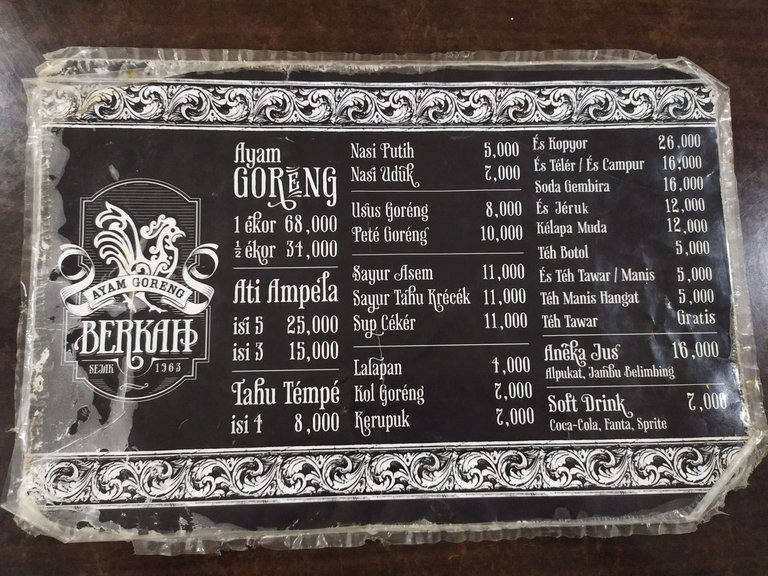 AYAM GORENG
BERKAH
SEJAK 1963
Ayam
GORENG
1 ékor 68,000
½ ékor 34,000
Ati Ampéla
isi 5 25,000
isi 3 15,000
Tahu Témpé
isi 4 8,000
Nasi Putih 5,000
Nasi Uduk 7,000
Usus Goréng 8,000
Peté Goréng 10,000
Sayur Asem 11,000
Sayur Tahu Krécék 11,000
Sup Cékér 11,000
Lalapan 4,000
Kol Goréng 7,000
Kerupuk 7,000
És Kopyor 26,000
És Télér / És Campur 16,000
Soda Gembira 16,000
És Jéruk 12,000
Kélapa Muda 12,000
Téh Botol 5,000
És Téh Tawar / Manis 5,000
Téh Manis Hangat 5,000
Téh Tawar Gratis
Anéka Jus 16,000
Alpukat, Jambu Belimbing
Soft Drink 7,000
Coca-Cola, Fanta, Sprite